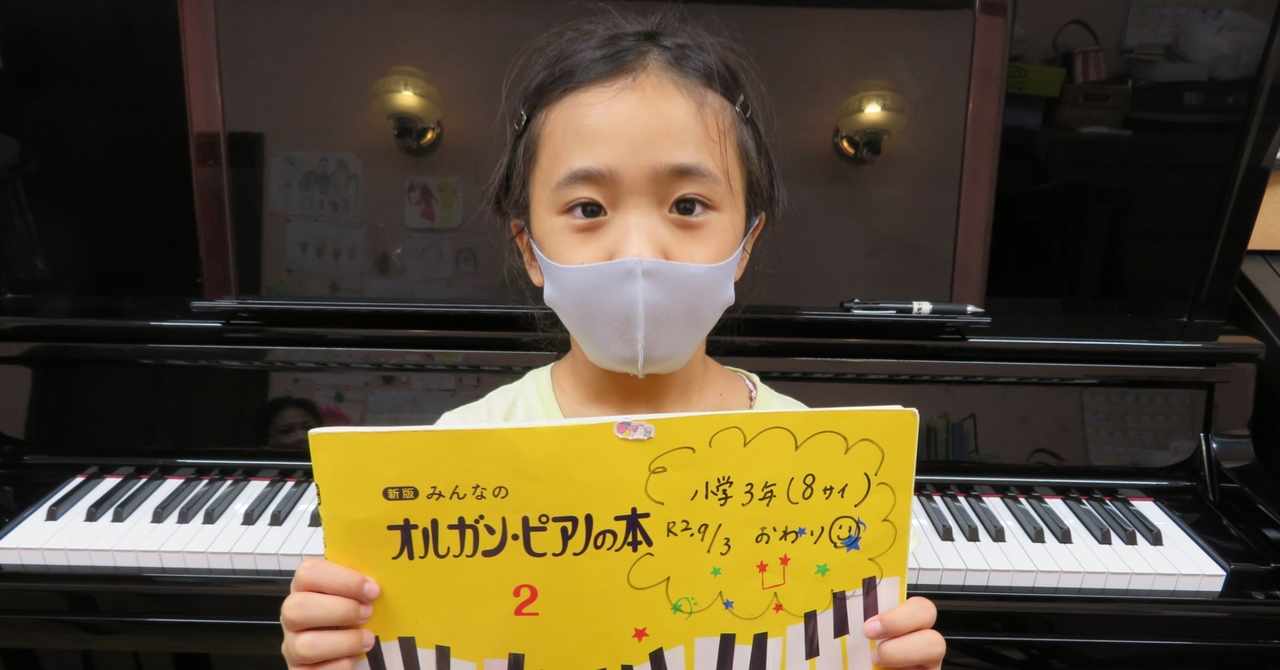 新版 みんなの
オルガン・ピアノの本
2
小学3年(8サイ)
R2.9/3 おわり